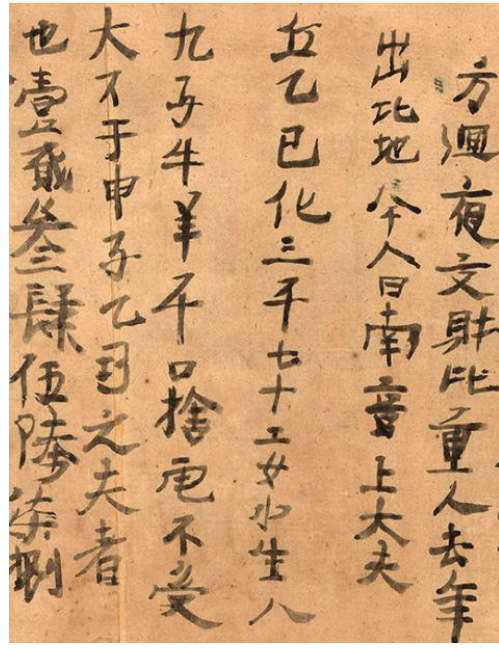 方迴夜文財比重人去年
出比地今人日南音上大夫
丘乙已化三千七十二女小生八
九子牛羊千口捨宅不受
大不于申子乙之夫者
也壹貳叁肆伍陸柒捌